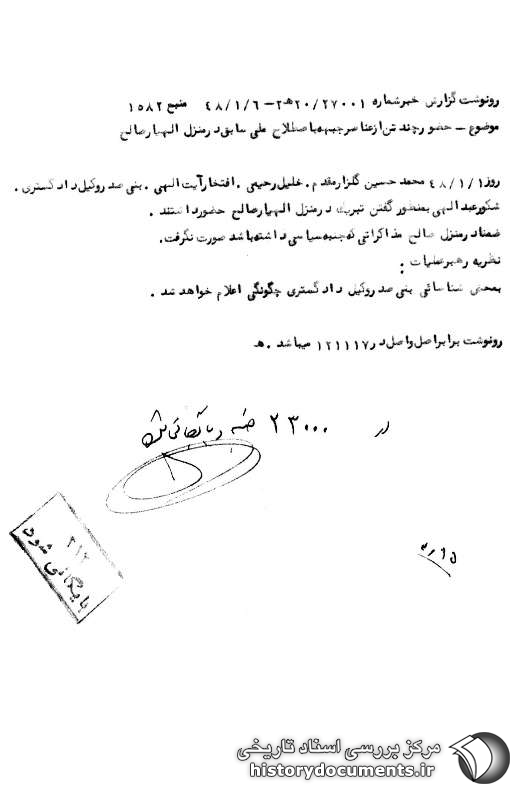 رونوشت گزارش خبر شماره ۲۰/۲۷۰۰۱ ه‍۲ - ۴۸/۱/۶ منبع ۱۵۸۲
موضوع - حضور چند تن از عناصر جبهه باصطلاح ملی سابق در منزل الهیار صالح
روز ۴۸/۱/۱ محمد حسین گلزار مقدم . خلیل رحیمی . افتخار آیت الهی . بنی صدر وکیل دادگستری .
شکور عبدالهی بمنظور گفتن تبریک در منزل الهیار صالح حضور داشتند .
ضمناد ر منزل صالح مذاکراتی که جنبه سیاسی داشته باشد صورت نگرفت .
نظریه رهبر عملیات :
بمحض شناسائی بنی صدر وکیل دادگستری چگونگی اعلام خواهد شد .
رونوشت برابر اصل واصل در ۱۲۱۱۱۷ میباشد . ه‍
در ۲۳۰۰۰
۳۱۲
بایگانی شود
مرکز بررسی اسناد تاریخی
historydocuments.ir